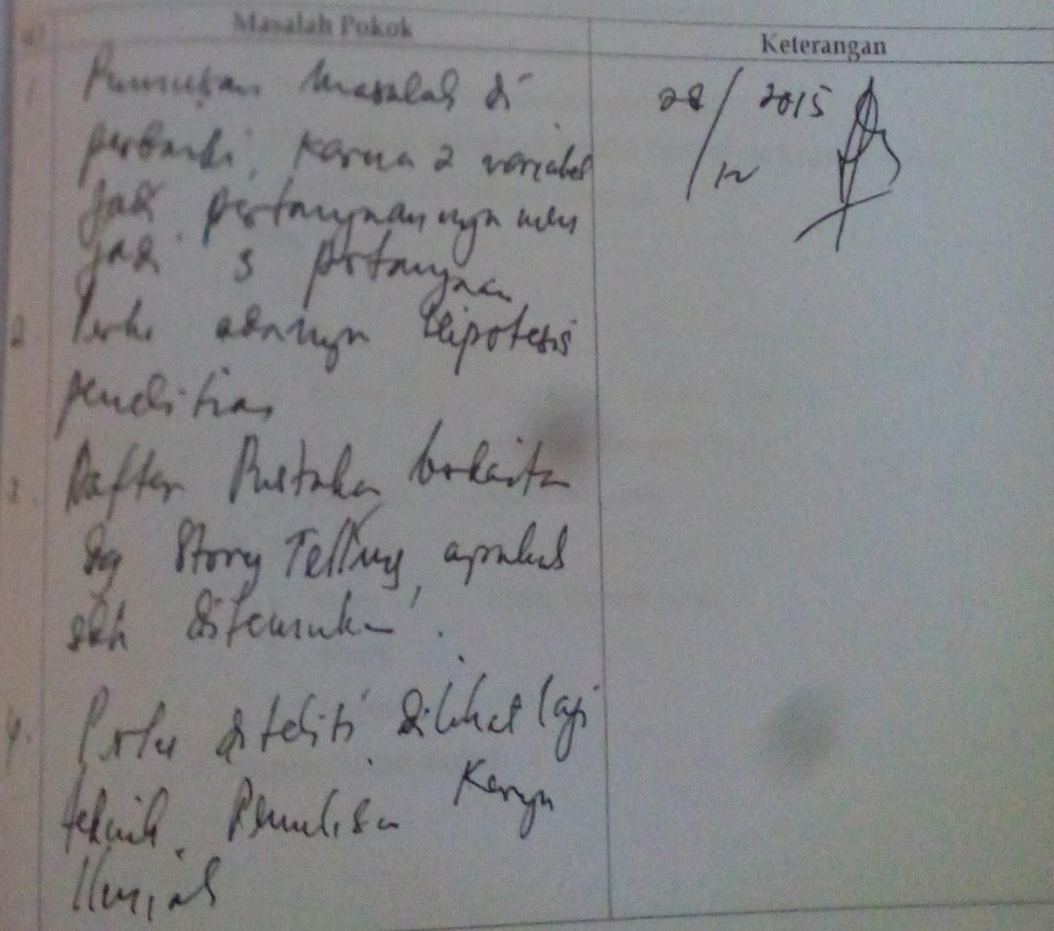 Masalah Pokok
Keterangan
1 Rumusan Masalah di
perbaiki, karena 2 variabel
jadi pertanyaannya men
jadi 3 pertanyaan
2. Perlu adanya Hipotesis
penelitian
3. Daftar Pustaka berkaitan
dg Story Telling, apakah
sdh ditemukan.
4. Perlu diteliti dilihat lagi
teknik Penulisan Karya
Ilmiah
28/12 2015